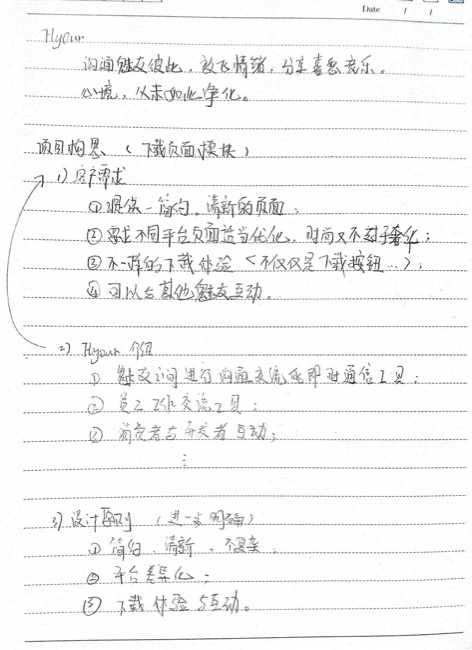 Date / /
Hyour
沟通魅友彼此，放飞情绪，分享喜怒哀乐。
心境，从未如此净化。
项目构思（下载页面模块）
1）客户需求
① 提供一简约，清新的页面；
② 要求不同平台页面适当优化，时尚又不过于奢华；
③ 不一样的下载体验（不仅仅是下载按钮...）；
④ 可以与其他魅友互动。
2）Hyour 介绍
① 魅友之间进行沟通交流的即时通信工具；
② 员工工作交流工具；
③ 消费者与开发者互动；
⋮
3）设计原则（进一步明确）
① 简约、清新、不复杂；
② 平台差异化；
③ 下载体验与互动。